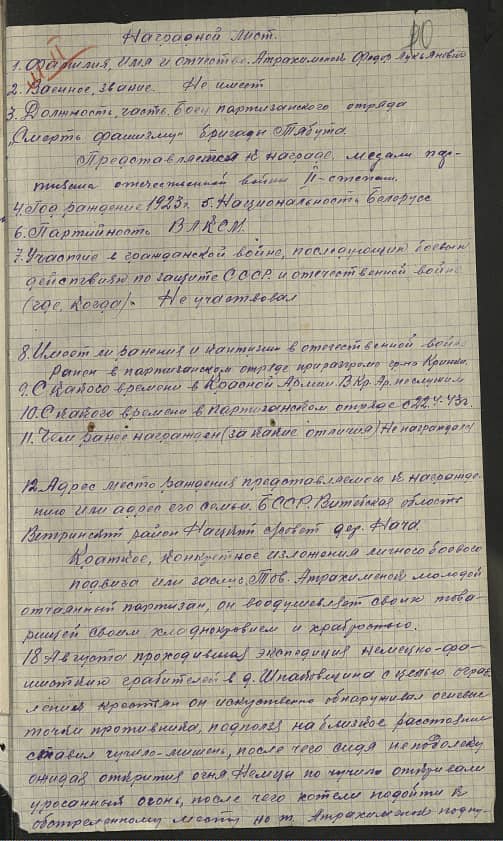 20
Наградной лист.
1. Фамилия, имя и отчество. Атрахименок Федор Лукьянович
2. Военное, звание. Не имеет
3. Должность, часть. Боец партизанского отряда
„Смерть фашизму" бригады Тябута.
Представляется к награде, медали пар-
тизана отечественной войны II-степени.
4. Год рождение 1923 г. 5. Национальность Белорусс
6. Партийность ВЛКСМ.
7. Участие в гражданской войне, последующих боевых
действиях по защите СССР. и отечественной войне
(где, когда). Не участвовал
8. Имеет ли ранения и кантузии в отечественной войне
Ранен в партизанском отряде при разгроме гр-на Кринки.
9. С какого времени в Красной Армии. В Кр. Ар. не служил
10. С какого времени в партизанском отряде с 22.4.43 г.
11. Чем ранее награжден (за какие отличия) Не награждался
12. Адрес место рождения представляемого к награжде-
нию или адрес его семьи. БССР. Витебская область
Ветринский район Нацкий совет дер. Нача.
Краткое, конкретное изложения личного боевого
подвига или заслуг. Тов. Атрахименок молодой
отчаянный партизан, он воодушевляет своих това-
рищей своим хладнокровием и храбростью.
18 Августа проходившая экспедиция немецко-фа-
шистких грабителей в д. с целью ограб-
ления крестьян он искуственно обнаруживал огневые
точки противника, подползя на близкое расстояние
ставил чучило-мишень, после чего сидя неподолеку
ожидая открытия огня Немцы по чучилу открывали
уросанный огонь, после чего хотели подойти к
обстреленному месту но т. Атрахименок подпу-